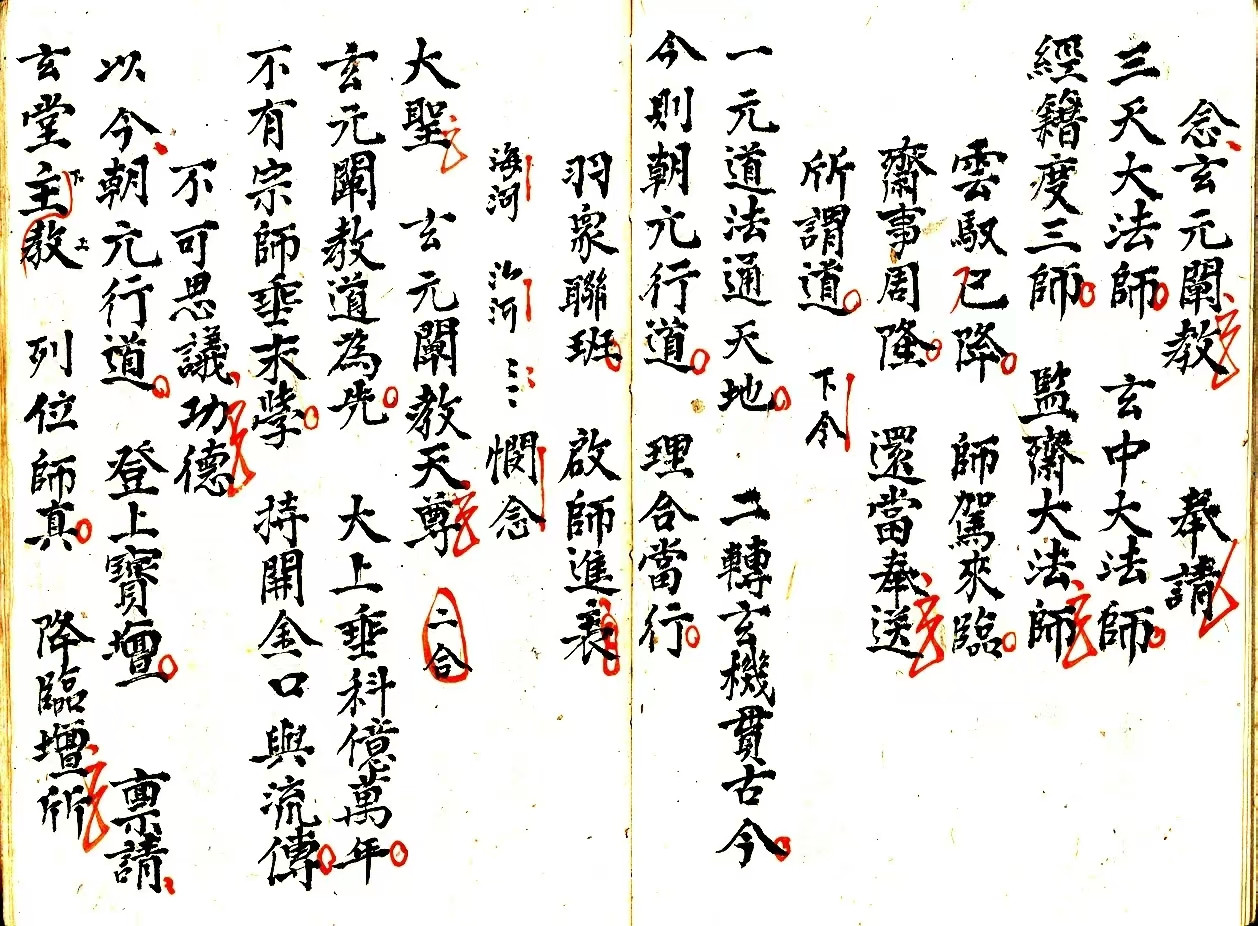 念玄元闡教 奉請
三天大法師 玄中大法師
經籍度三師 監齋大法師
雲馭已降 師駕來臨
齋事周隆 還當奉送
所謂道 下令
一元道法通天地 二轉玄機貫古今
今則朝元行道 理合當行
羽衆聯班 啟師進表
海河 沿河 憫念
大聖 玄元闡教天尊 二合
玄元闡教道為先 大上垂科億萬年
不有宗師垂末學 持開金口與流傳
不可思議功德
以今朝元行道 登上寶壇 稟請
玄堂主教 列位師真 降臨壇所
下
上